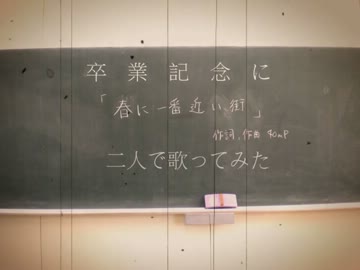 卒業記念に
「春に一番近い街」
作詞.作曲 40mP
二人で歌ってみた